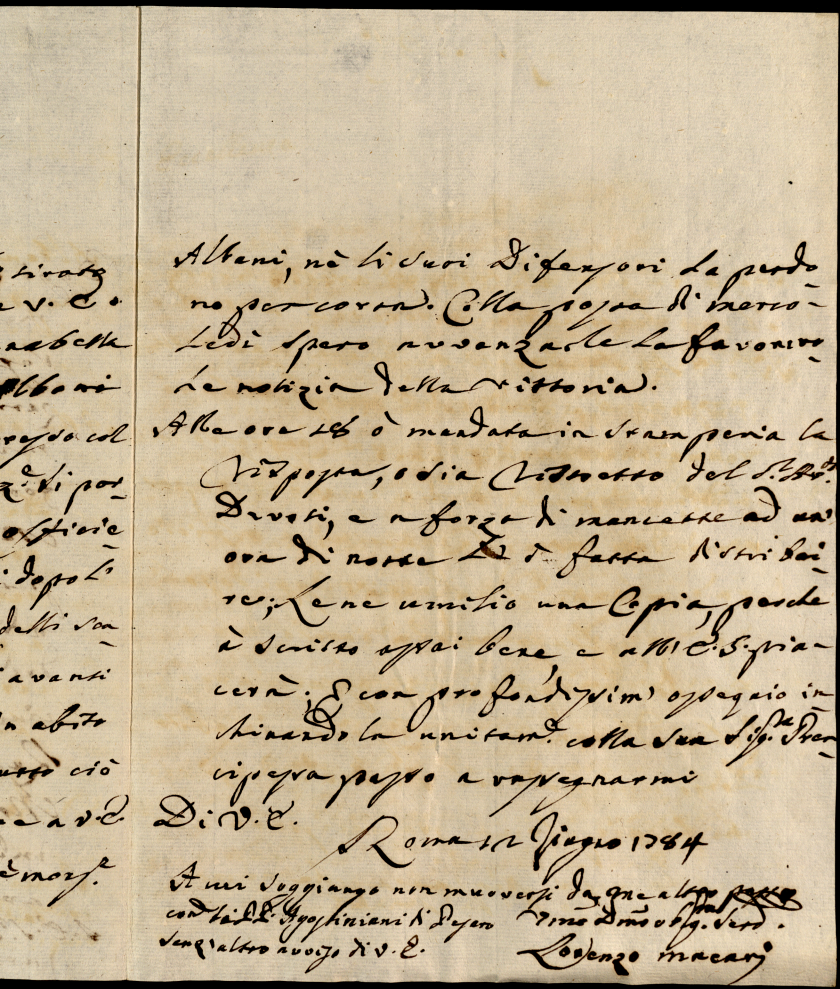 sirata
e V. E.
nabella
Albani
presso col
di por-
offizie-
dopo l'
delli sca-
avanti
in abito
tutto ciò
e a V. E.
è mors.e
Albani, nè li suoi Difensori la perdo-
no per corsa. Colla posta di merco-
ledì spero avvanzarle la favorevo-
le notizia della Vittoria.
Alle ore 18 ò mandata in stamperia la
Risposta, o sia Ristretto del S.r
Devoti, e a forza di mancette ad un'
ora di notte si è fatta distribui-
re; Le ne umilio una Copia, perchè
à scritto assai bene, e all' E. S. pia-
cerà; E con profondissim' ossequio in-
chinandola unitam.e colla sua Sig.ra Pren-
cipessa passo a rassegnarmi
Di V. E.
Roma 12 Giugno 1784
A cui soggiungo non muoversi da me altro passo
con li PP. Agostiniani di Pesaro
senz' altro avviso di V. E.
Umo Dmo obg. Serv.
Lorenzo Macarj